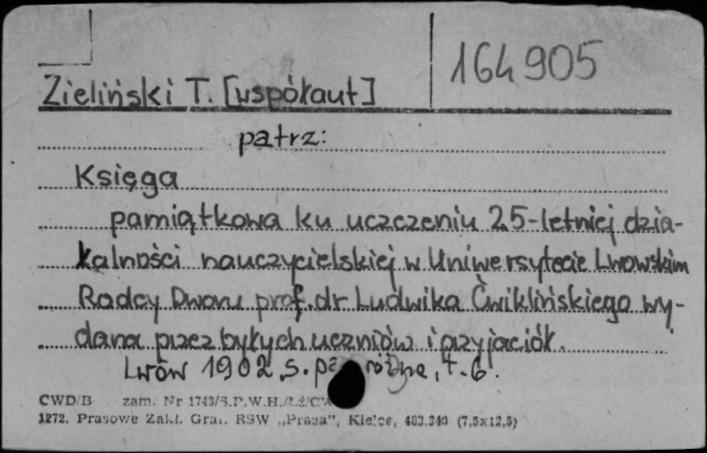 164905
Zieliński T. [współaut]
patrz:
Księga
pamiątkowa ku uczczeniu 25-letniej dzia-
łalności nauczycielskiej w Uniwersytecie Lwowskim
Radcy Dworu prof. dr Ludwika Ćwiklińskiego wy-
dana przez byłych uczniów i przyjaciół.
Lwów 1902, s. t. 6.
CWD B zam. Nr 1743/S.P.W.H.
1272. Prasowe Zakł. Graf. RSW „Prasa", Kielce, 483.340 (7,5x12,5)